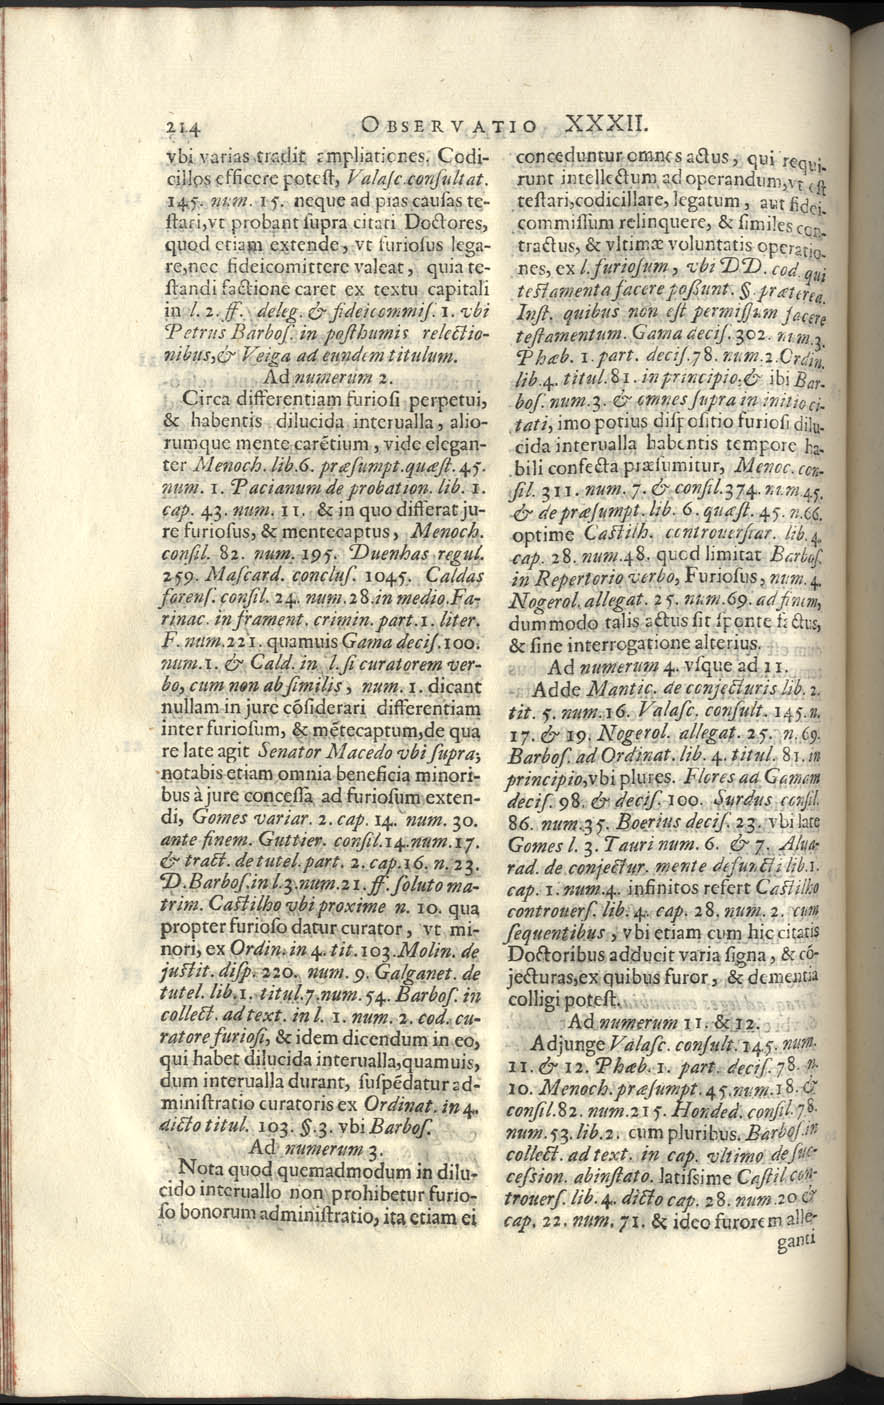 214 OBSERVATIO XXXII.
vbi varias tradit ampliationes. Codi-
cillos efficere potest, Valasc. consultat.
145. num. 15. neque ad pias causas te-
stari, vt probant supra citati Doctores,
quod etiam extende, vt furiosus lega-
re, nec fideicomittere valeat, quia te-
standi factione caret ex textu capitali
in l. 2. ff. deleg. & fideicommis. 1. vbi
Petrus Barbos. in posthumis relectio-
nibus, & Veiga ad eundem titulum.
Ad numerum 2.
Circa differentiam furiosi perpetui,
& habentis dilucida interualla, alio-
rumque mente carẽtium, vide elegan-
ter Menoch. lib. 6. præsumpt. quæst. 45.
num. 1. Pacianum de probation. lib. 1.
cap. 43. num. 11. & in quo differat ju-
re furiosus, & mentecaptus, Menoch.
consil. 82. num. 195. Duenhas regul.
259. Mascard. conclus. 1045. Caldas
forens. consil. 24. num. 28. in medio. Fa-
rinac. in frament. crimin. part. 1. liter.
F. num. 221. quamuis Gama decis. 100.
num. 1. & Cald. in l. si curatorem ver-
bo, cum non absimilis, num. 1. dicant
nullam in jure cõsiderari differentiam
inter furiosum, & mẽtecaptum, de qua
re late agit Senator Macedo vbi supra;
notabis etiam omnia beneficia minori-
bus à jure concessa ad furiosum exten-
di, Gomes variar. 2. cap. 14. num. 30.
ante finem. Guttier. consil. 14. num. 17.
& tract. de tutel. part. 2. cap. 16. n. 23.
D. Barbos. in l. 3. num. 21. ff. soluto ma-
trim. Castilho vbi proxime n. 10. qua
propter furioso datur curator, vt mi-
nori, ex Ordin. in 4. tit. 103. Molin. de
justit. disp. 220. num. 9. Galganet. de
tutel. lib. 1. titul. 7. num. 54. Barbos. in
collect. ad text. in l. 1. num. 2. cod. cu-
ratore furiosi, & idem dicendum in eo,
qui habet dilucida interualla, quamuis,
dum interualla durant, suspẽdatur ad-
ministratio curatoris ex Ordinat. in 4.
dicto titul. 103. §. 3. vbi Barbos.
Ad numerum 3.
Nota quod quemadmodum in dilu-
cido interuallo non prohibetur furio-
so bonorum administratio, ita etiam ei
conceduntur omnes actus, qui requi-
runt intellectum ad operandum, vt est
testari, codicillare, legatum, aut fidei-
commissum relinquere, & similes con-
tractus, & vltimæ voluntatis operatio-
nes, ex l. furiosum, vbi DD. cod. qui
testamenta facere possunt. §. præterea.
Inst. quibus non est permissum facere
testamentum. Gama decis. 302. num. 3.
Phæb. 1. part. decis. 78. num. 2. Ordin.
lib. 4. titul. 81. in principio. & ibi Bar-
bos. num. 3. & omnes supra in initio ci-
tati, imo potius dispositio furiosi dilu-
cida intervalla habentis tempore ha-
bili confecta præsumitur, Menoc. con-
sil. 311. num. 7. & consil. 374. num 45.
& de præsumpt. lib. 6. quæst. 45. n. 66.
optime Castilh. controuersiar. lib. 4.
cap. 28. num. 48. quod limitat Barbos.
in Repertorio verbo, Furiosus, num. 4.
Nogerol. allegat. 25. num. 69. ad finem,
dummodo talis actus sit sponte factus,
& sine interrogatione alterius.
Ad numerum 4. vsque ad 11.
Adde Mantic. de conjecturis lib. 2.
tit. 5. num. 16. Valasc. consult. 145. n.
17. & 19. Nogerol. allegat. 25. n. 69.
Barbos. ad Ordinat. lib. 4. titul. 81. in
principio, vbi plures. Flores ad Gamam
decis. 98. & decis. 100. Surdus consil.
86. num. 35. Boerius decis. 23. vbi late
Gomes l. 3. Tauri num. 6. & 7. Alua-
rad. de conjectur. mente defuncti lib. 1.
cap. 1. num. 4. infinitos refert Castilho
controuers. lib. 4. cap. 28. num. 2. cum
sequentibus, vbi etiam cum hic citatis
Doctoribus adducit varia signa, & cõ-
jecturas, ex quibus furor, & dementia
colligi potest.
Ad numerum 11. & 12.
Adjunge Valasc. consult. 145. num.
11. & 12. Phæb. 1. part. decis. 78. n.
10. Menoch. præsumpt. 45. num. 18. &
consil. 82. num. 215. Honded. consil. 78.
num. 53. lib. 2. cum pluribus. Barbos. in
collect. ad text. in cap. vltimo de suc-
cession. abinstato. latissime Castil con-
trouers. lib. 4. dicto cap. 28. num 20 &
cap. 22. num. 71. & ideo furorem alle-
ganti